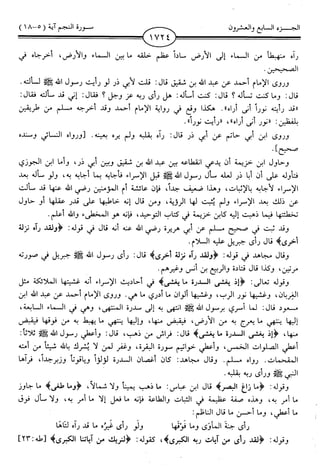 الجـــزء السابع والعشرون
سورة النجم آية (٥-١٨)
١٧٢٤
رآه منهبطاً من السماء إلى الأرض ساداً عظم خلقه ما بين السماء والأرض، أخرجاه في
الصحيحين.
وروى الإمام أحمد عن عبد الله بن شقيق قال: قلت لأبي ذر لو رأيت رسول الله ﷺ لسألته.
قال: وما كنت تسأله؟ قال: كنت أسأله: هل رأى ربه عز وجل؟ فقال: إني قد سألته فقال:
«قد رأيته نوراً أنى أراه». هكذا وقع في رواية الإمام أحمد وقد أخرجه مسلم من طريقين
بلفظين: «نور أنى أراه»، «رأيت نوراً».
وروى ابن أبي حاتم عن أبي ذر قال: رآه بقلبه ولم يره بعينه. [ورواه النسائي وسنده
صحيح].
وحاول ابن خزيمة أن يدعي انقطاعه بين عبد الله بن شقيق وبين أبي ذر، وأما ابن الجوزي
فتأوله على أن أبا ذر لعله سأل رسول الله ﷺ قبل الإسراء فأجابه بما أجابه به، ولو سأله بعد
الإسراء لأجابه بالإثبات، وهذا ضعيف جداً، فإن عائشة أم المؤمنين رضي الله عنها قد سألت
عن ذلك بعد الإسراء ولم يثبت لها الرؤية، ومن قال إنه خاطبها على قدر عقلها أو حاول
تخطئتها فيما ذهبت إليه كابن خزيمة في كتاب التوحيد، فإنه هو المخطىء، والله أعلم.
وقد ثبت في صحيح مسلم عن أبي هريرة رضي الله عنه أنه قال في قوله: ﴿ولقد رآه نزلة
أخرى﴾ قال: رأى جبريل عليه السلام.
وقال مجاهد في قوله: ﴿ولقد رآه نزلة أخرى﴾ قال: رأى رسول الله ﷺ جبريل في صورته
مرتين، وكذا قال قتادة والربيع بن أنس وغيرهم.
وقوله تعالى: ﴿إذ يغشى السدرة ما يغشى﴾ في أحاديث الإسراء أنه غشيتها الملائكة مثل
الغربان، وغشيها نور الرب، وغشيها ألوان ما أدري ما هي. وروى الإمام أحمد عن عبد الله ابن
مسعود قال: لما أسري برسول الله ﷺ انتهى به إلى سدرة المنتهى، وهي في السماء السابعة،
إليها ينتهي ما يعرج به من الأرض، فيقبض منها، وإليها ينتهي ما يهبط به من فوقها فيقبض
منها، ﴿إذ يغشى السدرة ما يغشى﴾ قال: فراش من ذهب، قال: وأعطي رسول الله ﷺ ثلاثاً:
أعطي الصلوات الخمس، وأعطي خواتيم سورة البقرة، وغفر لمن لا يشرك بالله شيئاً من أمته
المقحمات. رواه مسلم. وقال مجاهد: كان أغصان السدرة لؤلؤاً وياقوتاً وزبرجداً، فرآها
النبي ﷺ ورأى ربه بقلبه.
وقوله: ﴿ما زاغ البصر﴾ قال ابن عباس: ما ذهب يميناً ولا شمالاً، ﴿وما طغى﴾ ما جاوز
ما أمر به، وهذه صفة عظيمة في الثبات والطاعة فإنه ما فعل إلا ما أمر به، ولا سأل فوق
ما أعطي، وما أحسن ما قال الناظم:
رأى جنة المأوى وما فوقها ولو رأى غيره ما قد رآه لتاها
وقوله: ﴿لقد رأى من آيات ربه الكبرى﴾، كقوله: ﴿لنريك من آياتنا الكبرى﴾ [طه: ٢٣]